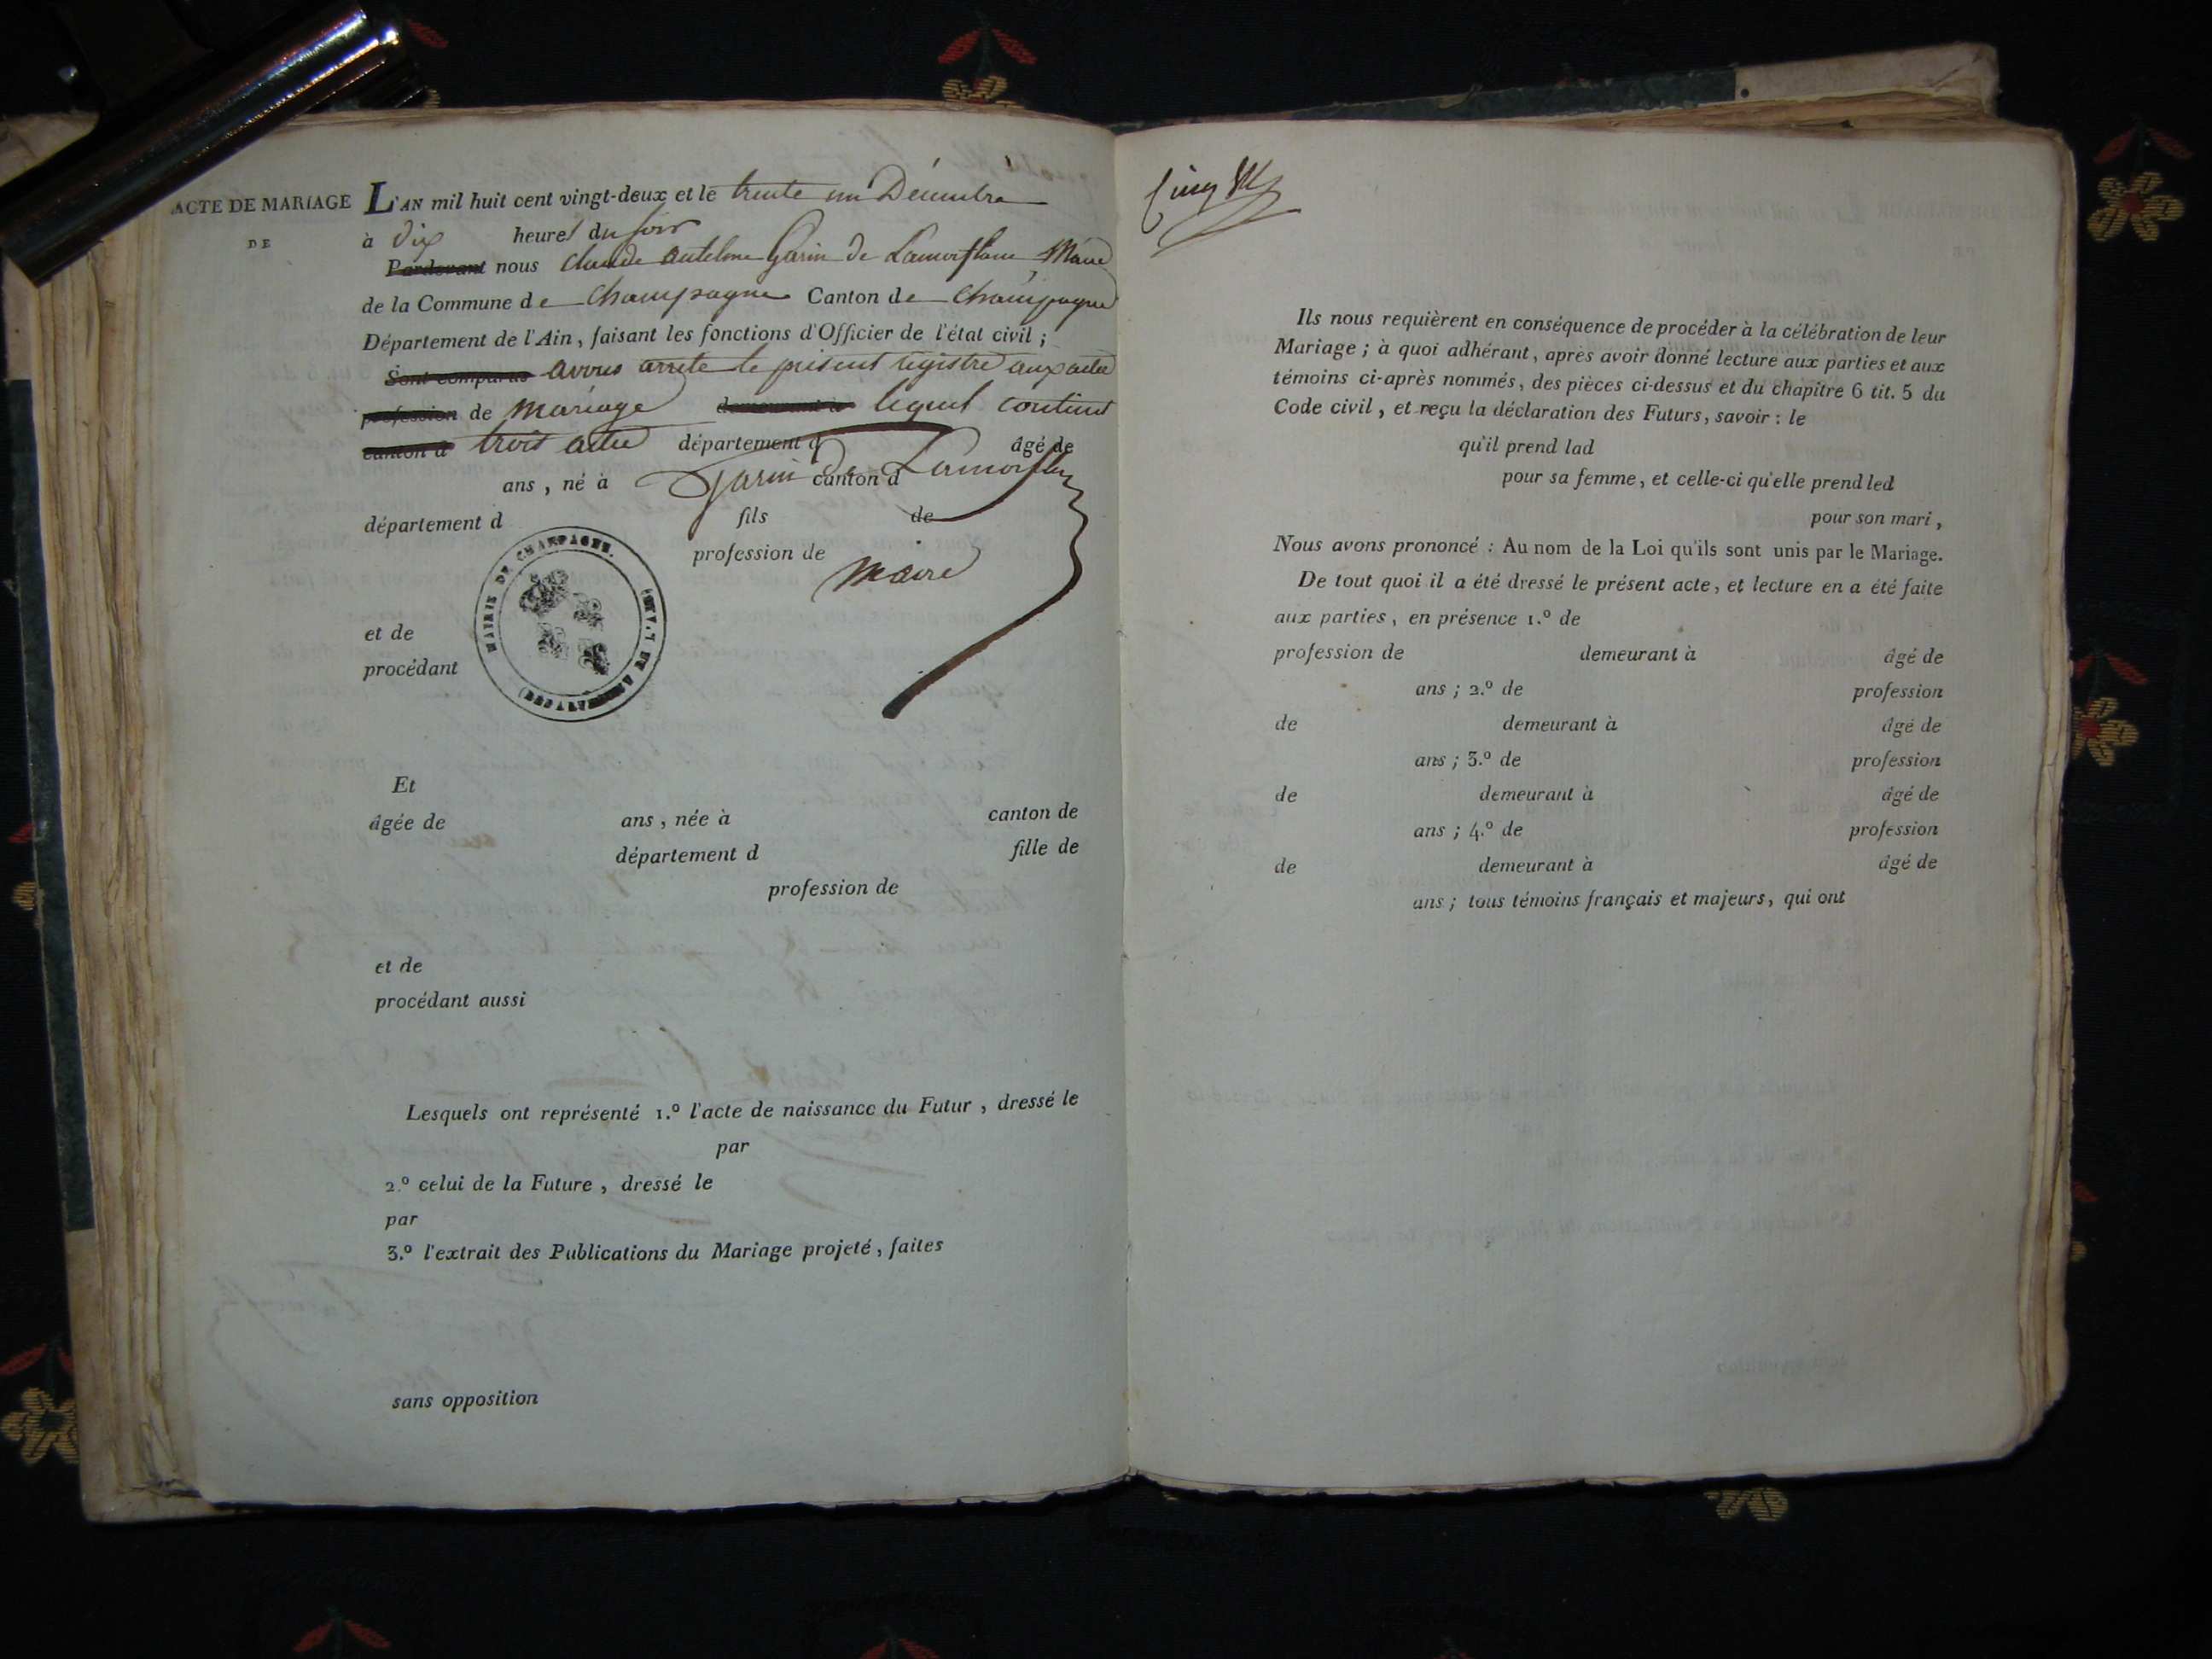 ACTE DE MARIAGE
DE
L'AN mil huit cent vingt-deux et le trente un Décembre
à dix heures du soir
Pardevant nous claude antelme Garin de Lamorflan Maire
de la Commune de Champagne Canton de Champagne
Département de l'Ain, faisant les fonctions d'Officier de l'état civil ;
Sont comparus avons arrete le present registre aux actes
profession de mariage demeurant à lequel contient
canton d trois actes département d âgé de
ans, né à canton d
Garin de Lamorflan
département d fils de
profession de
Maire
MAIRIE DE CHAMPAGNE.
et de
procédant
Et
âgée de ans, née à canton de
département d fille de
profession de
et de
procédant aussi
Lesquels ont représenté 1.º l'acte de naissance du Futur, dressé le
par
2.º celui de la Future, dressé le
par
3.º l'extrait des Publications du Mariage projeté, faites
sans opposition
Cinq
Ils nous requièrent en conséquence de procéder à la célébration de leur
Mariage ; à quoi adhérant, après avoir donné lecture aux parties et aux
témoins ci-après nommés, des pièces ci-dessus et du chapitre 6 tit. 5 du
Code civil, et reçu la déclaration des Futurs, savoir : le
qu'il prend lad
pour sa femme, et celle-ci qu'elle prend led
pour son mari,
Nous avons prononcé : Au nom de la Loi qu'ils sont unis par le Mariage.
De tout quoi il a été dressé le présent acte, et lecture en a été faite
aux parties, en présence 1.º de
profession de demeurant à âgé de
ans ; 2.º de profession
de demeurant à âgé de
ans ; 3.º de profession
de demeurant à âgé de
ans ; 4.º de profession
de demeurant à âgé de
ans ; tous témoins français et majeurs, qui ont